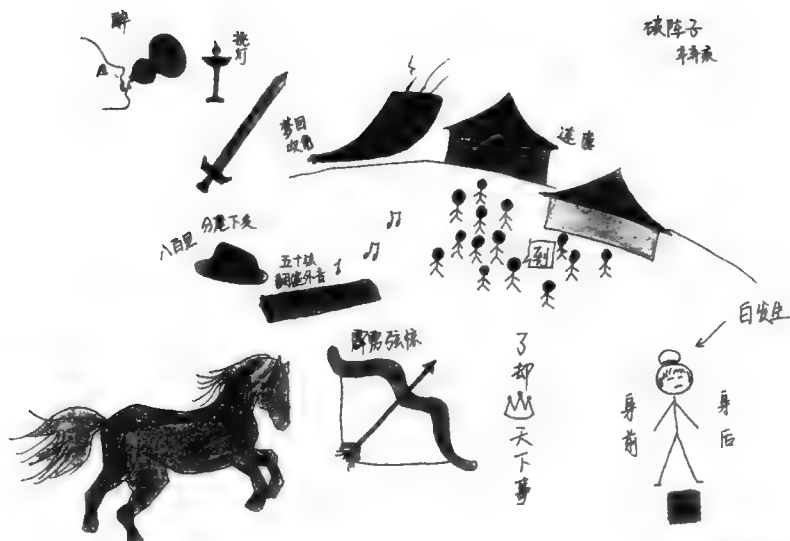 醉
挑灯
破阵子
辛弃疾
梦回
吹角
连营
八百里
分麾下炙
五十弦
翻塞外音
到
霹雳弦惊
了却
天下事
白发生
身前
身后